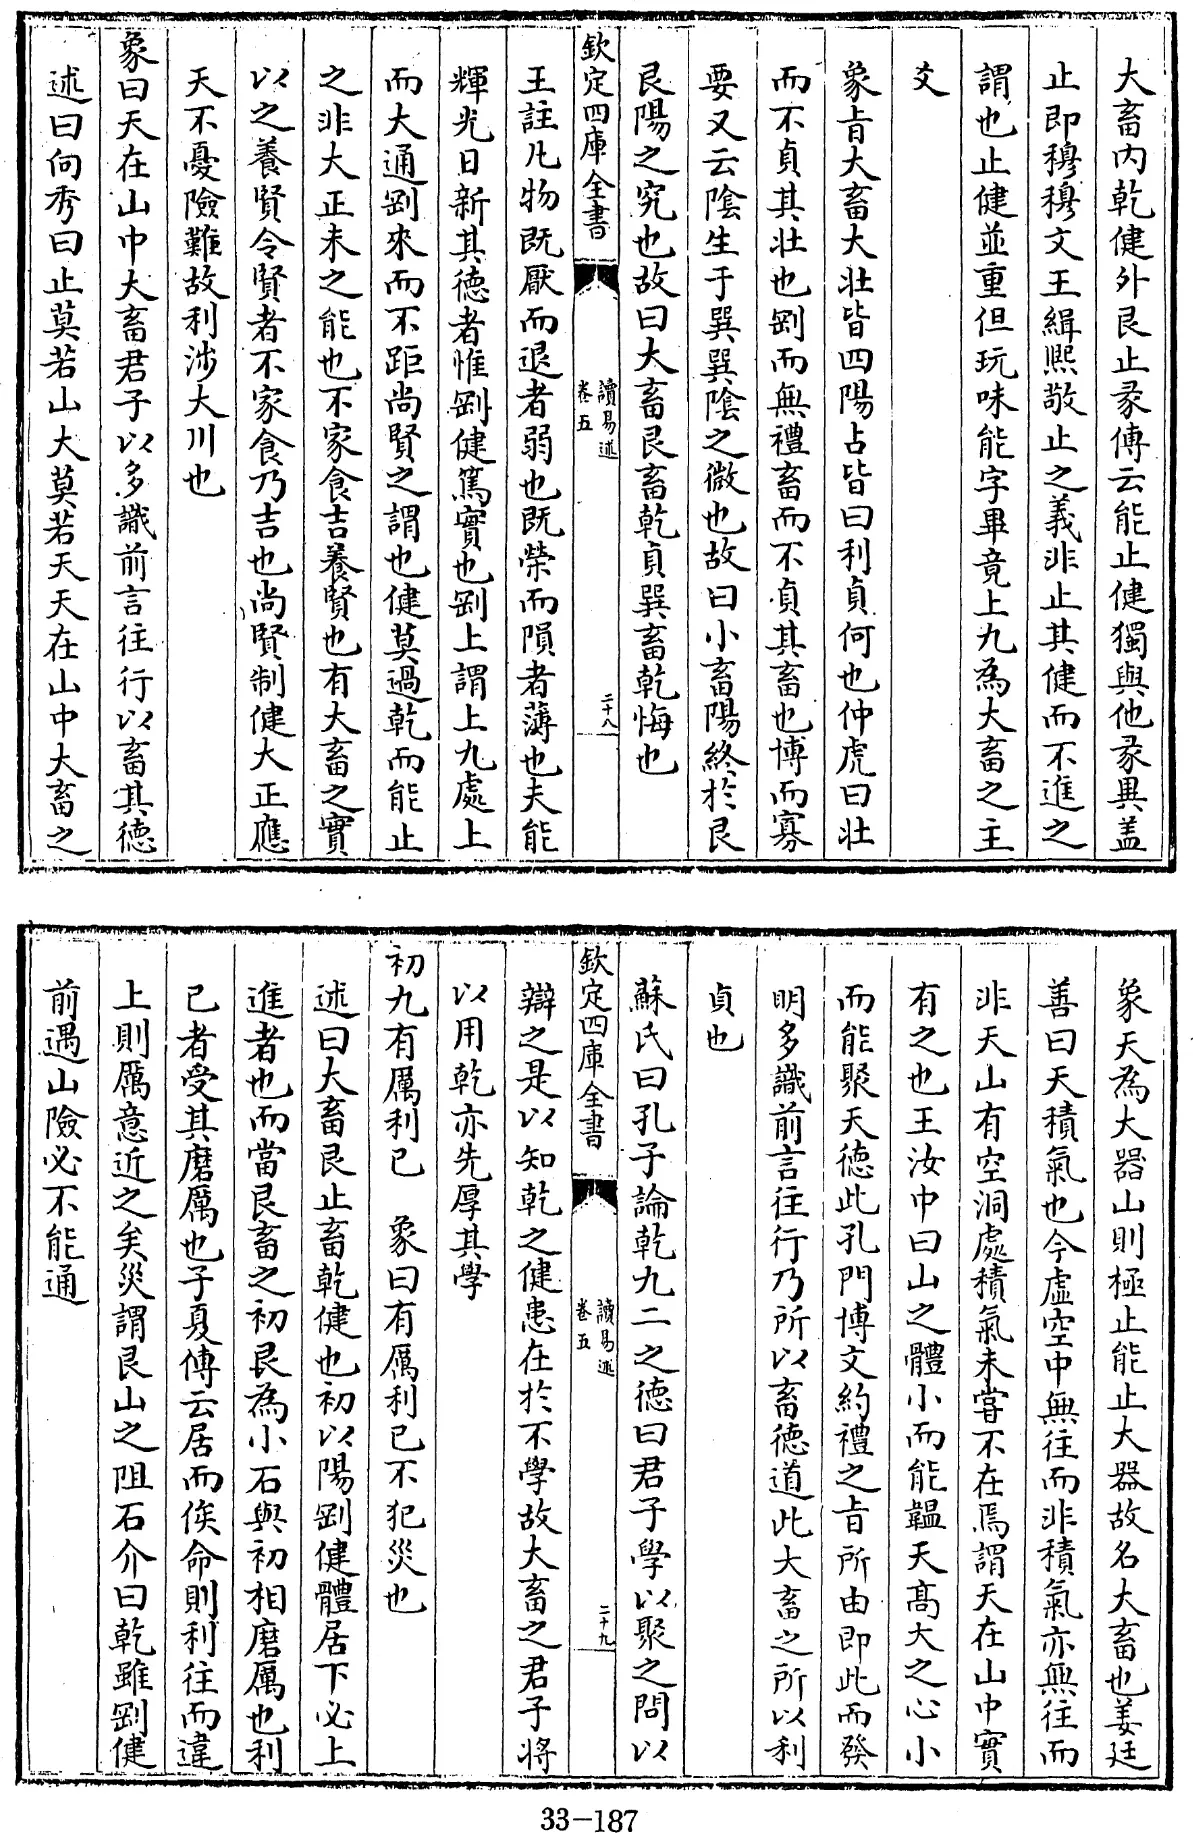 大畜内乾健外艮止彖傳云能止健獨與他彖異盖
止即穆穆文王緝熙敬止之義非止其健而不進之
謂也止健並重但玩味能字畢竟上九為大畜之主
爻
象旨大畜大壯皆四陽占皆曰利貞何也仲虎曰壯
而不貞其壯也剛而無禮畜而不貞其畜也博而寡
要又云陰生于巽巽陰之微也故曰小畜陽終於艮
艮陽之究也故曰大畜艮畜乾貞巽畜乾悔也
欽定四庫全書
讀易述
卷五
二十八
王註凡物既厭而退者弱也既榮而隕者薄也夫能
輝光日新其德者惟剛健篤實也剛上謂上九處上
而大通剛來而不距尚賢之謂也健莫過乾而能止
之非大正未之能也不家食吉養賢也有大畜之實
以之養賢令賢者不家食乃吉也尚賢制健大正應
天不憂險難故利涉大川也
象曰天在山中大畜君子以多識前言往行以畜其德
述曰向秀曰止莫若山大莫若天天在山中大畜之
象天為大器山則極止能止大器故名大畜也姜廷
善曰天積氣也今虛空中無往而非積氣亦無往而
非天山有空洞處積氣未嘗不在焉謂天在山中實
有之也王汝中曰山之體小而能韞天髙大之心小
而能聚天德此孔門博文約禮之旨所由即此而發
明多識前言往行乃所以畜德道此大畜之所以利
貞也
蘇氏曰孔子論乾九二之德曰君子學以聚之問以
欽定四庫全書
讀易述
卷五
二十九
辯之是以知乾之健患在於不學故大畜之君子將
以用乾亦先厚其學
初九有厲利已　象曰有厲利已不犯災也
述曰大畜艮止畜乾健也初以陽剛健體居下必上
進者也而當艮畜之初艮為小石與初相磨厲也利
已者受其磨厲也子夏傳云居而俟命則利往而違
上則厲意近之矣災謂艮山之阻石介曰乾雖剛健
前遇山險必不能通
33-187